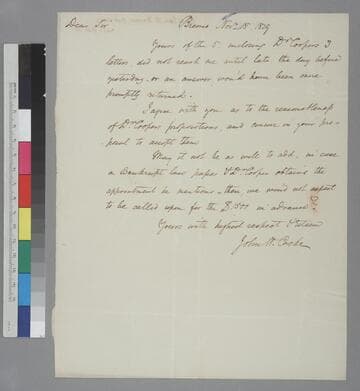 Dear Sir Bremo Novr 18. 1819
Yours of the 5. inclosing Dr Coopers 3
letters did not reach me until late the day before
yesterday - or an answer would have been more
promptly returned.
I agree with you as to the reasonableness
of Dr Coopers propositions, and concur in your pro-
posal to accept them
May it not be as well to add, in case
a Bankrupt law pass & Dr Cooper obtains the
appointment he mentions - then we would not expect
to be called upon for the $ 1500 in advance
Yours with highest respect & esteem
John H. Cocke